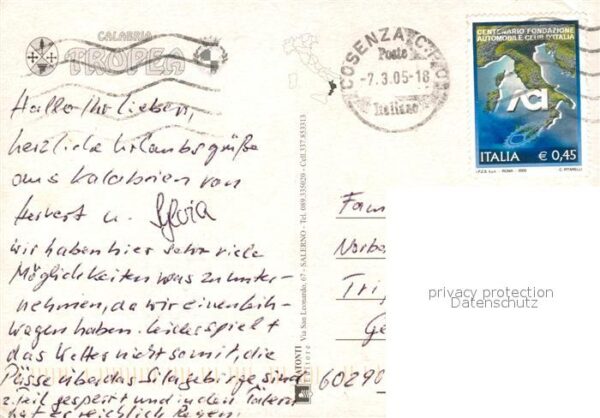 CALABRIA
TROPEA
Hallo Ihr Lieben,
herzliche Urlaubsgrüße
aus Kalabrien von
Herbert u. Sylvia
wir haben hier sehr viele
Möglichkeiten was zu unter-
nehmen, da wir einen Leih-
wagen haben. Leider spielt
das Wetter nicht so mit, die
Pässe über das Silagebirge sind
z. Teil gesperrt und in den Tälern
hat es reichlich Regen.
MATONTI
Via San Leonardo, 67 - SALERNO - Tel. 089.335029 - Cell.337.853313
COSENZA C
Poste
-7.3.05-18
Italiane
CENTENARIO FONDAZIONE
AUTOMOBILE CLUB D'ITALIA
ACI
ITALIA € 0,45
I.P.Z.S. S.p.A. - ROMA - 2005 C. PITARELLI
Fam
Norbe
Tri
Ge
60290
privacy protection
Datenschutz